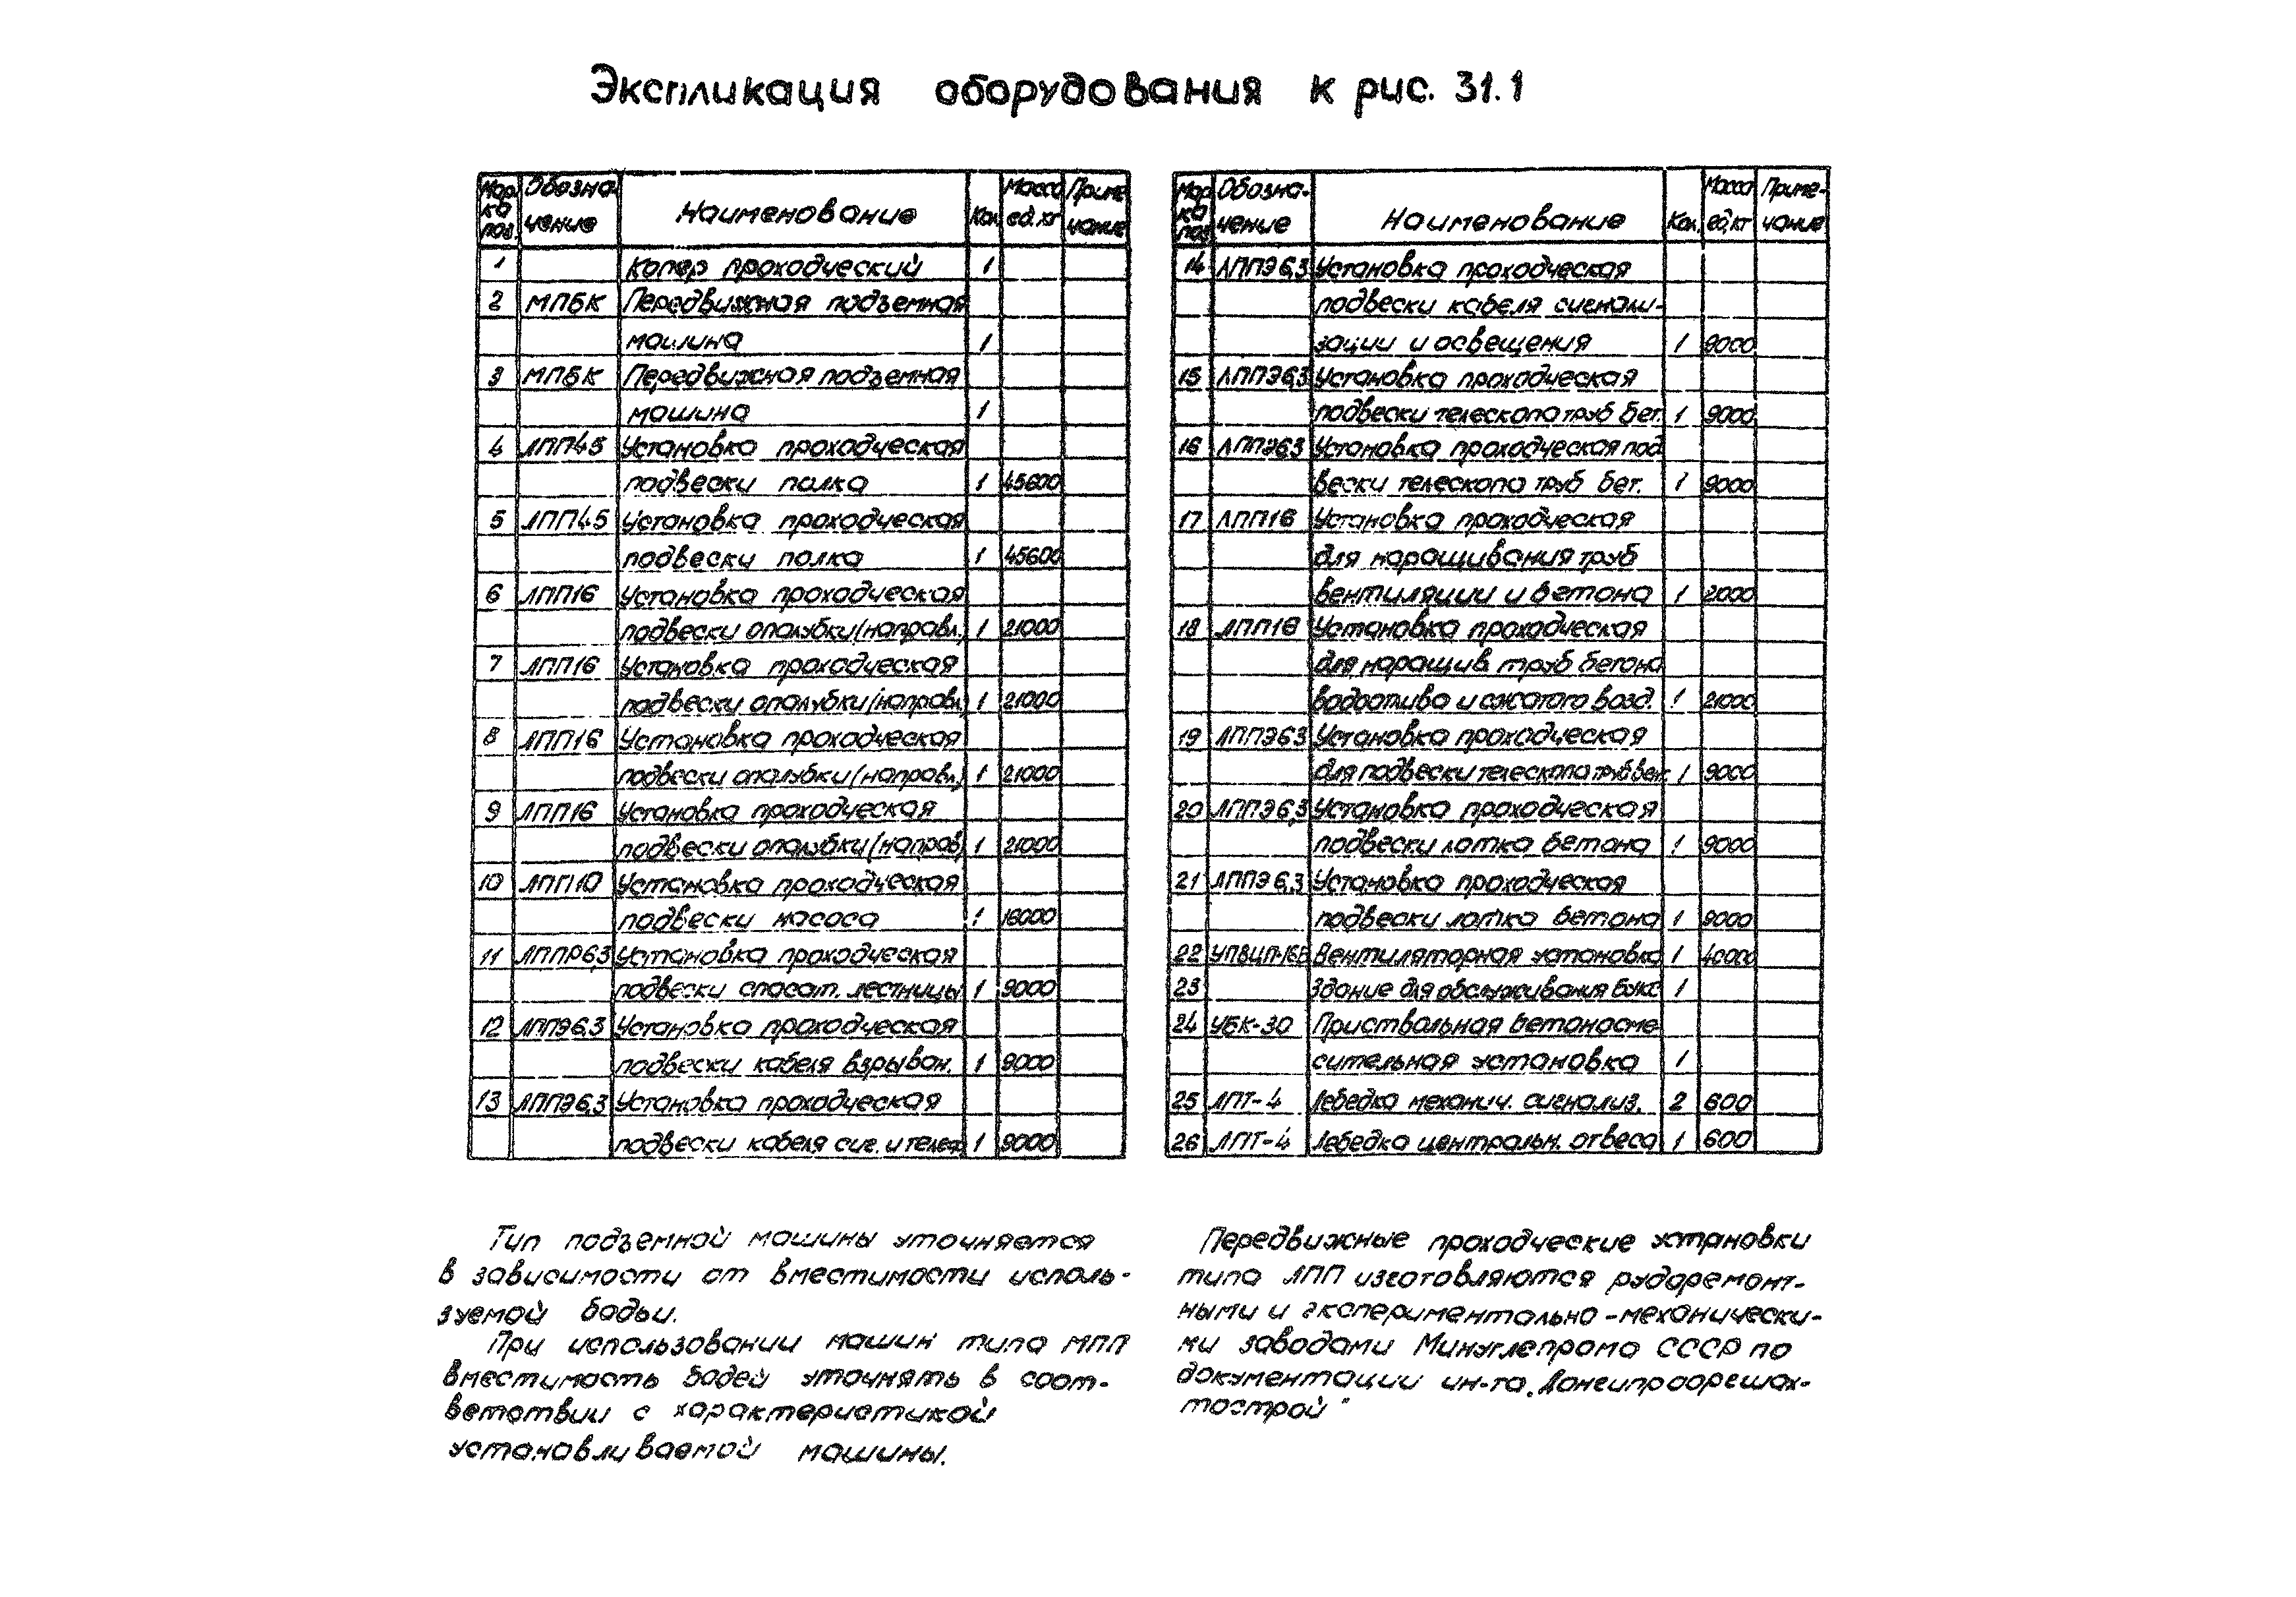 Экспликация оборудования к рис. 31.1
Мар Обозна Наименование Кол. Масса Приме
ка чение ед.кг чание
поз.
1 Копер проходческий 1
2 МПБК Передвижная подъемная
машина 1
3 МПБК Передвижная подъемная
машина 1
4 ЛПП45 Установка проходческая
подвески полка 1 45600
5 ЛПП45 Установка проходческая
подвески полка 1 45600
6 ЛПП16 Установка проходческая
подвески опалубки (направл.) 1 21000
7 ЛПП16 Установка проходческая
подвески опалубки (направл.) 1 21000
8 ЛПП16 Установка проходческая
подвески опалубки (направл.) 1 21000
9 ЛПП16 Установка проходческая
подвески опалубки (направ.) 1 21000
10 ЛПП10 Установка проходческая
подвески насоса 1 16000
11 ЛППР6,3 Установка проходческая
подвески спасат. лестницы 1 9000
12 ЛППЭ6,3 Установка проходческая
подвески кабеля взрыван. 1 9000
13 ЛППЭ6,3 Установка проходческая
подвески кабеля сиг. и телеф 1 9000
Мар Обозна- Наименование Кол. Масса Приме-
ка чение ед,кг чание
поз
14 ЛППЭ6,3 Установка проходческая
подвески кабеля сигнали-
зации и освещения 1 9000
15 ЛППЭ6,3 Установка проходческая
подвески телескопа труб бет. 1 9000
16 ЛППЭ6,3 Установка проходческая под
вески телескопа труб бет. 1 9000
17 ЛПП16 Установка проходческая
для наращивания труб
вентиляции и бетона 1 2000
18 ЛПП16 Установка проходческая
для наращив. труб бетона
водоотлива и сжатого возд. 1 21000
19 ЛППЭ6,3 Установка проходческая
для подвески телескопа труб бет. 1 9000
20 ЛППЭ6,3 Установка проходческая
подвески лотка бетона 1 9000
21 ЛППЭ6,3 Установка проходческая
подвески лотка бетона 1 9000
22 УПВЦП-16Б Вентиляторная установка 1 40000
23 Здание для обслуживания букс 1
24 УБК-30 Приствольная бетоносме
сительная установка 1
25 ЛПТ-4 Лебедка механич. сигнализ. 2 600
26 ЛПТ-4 Лебедка центральн. отвеса 1 600
Тип подъемной машины уточняется
в зависимости от вместимости исполь-
зуемой бадьи.
При использовании машин типа МПП
вместимость бадей уточнять в соот-
ветствии с характеристикой
устанавливаемой машины.
Передвижные проходческие установки
типа ЛПП изготовляются рударемонт-
ными и экспериментально-механически-
ми заводами Минуглепрома СССР по
документации ин-та „Донгипрооргшах-
тострой"